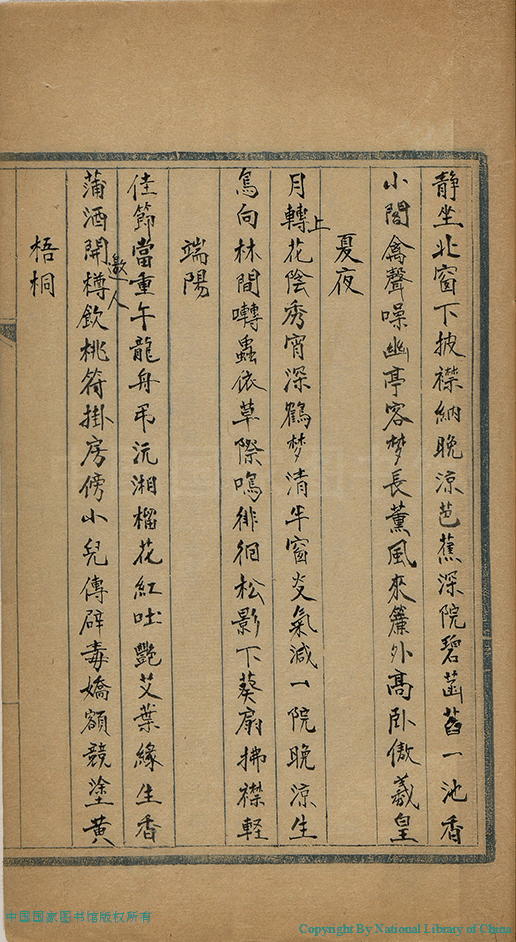 静坐北窗下披襟納晚涼芭蕉深院碧菡萏一池香
小閣禽聲噪幽亭客梦長薰風來簾外高卧傲羲皇
夏夜
月轉上花陰秀宵深鶴梦清半窗炎氣減一院晚涼生
鳥向林間囀蟲依草際鳴徘徊松影下葵扇拂襟軽
端陽
佳節當重午龍舟弔沅湘榴花紅吐艷艾葉緑生香
蒲酒開樽邀人飲桃符掛房傍小兒傳辟毒嬌額競塗黄
梧桐
中国国家图书馆版权所有
Copyright By National Library of China